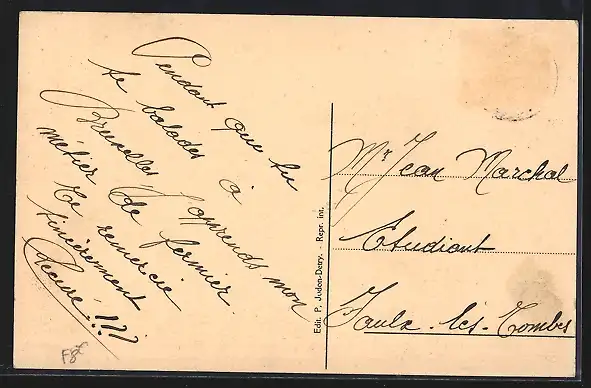 Pendant que tu
te balades à
Bruxelles j'apprends mon
métier de fermier.
Te remercie
sincèrement
!!!
Edit. P. Judon-Detry. - Repr. int.
Mr Jean Marchal
Etudiant
Faulx-les-Tombes
F8€